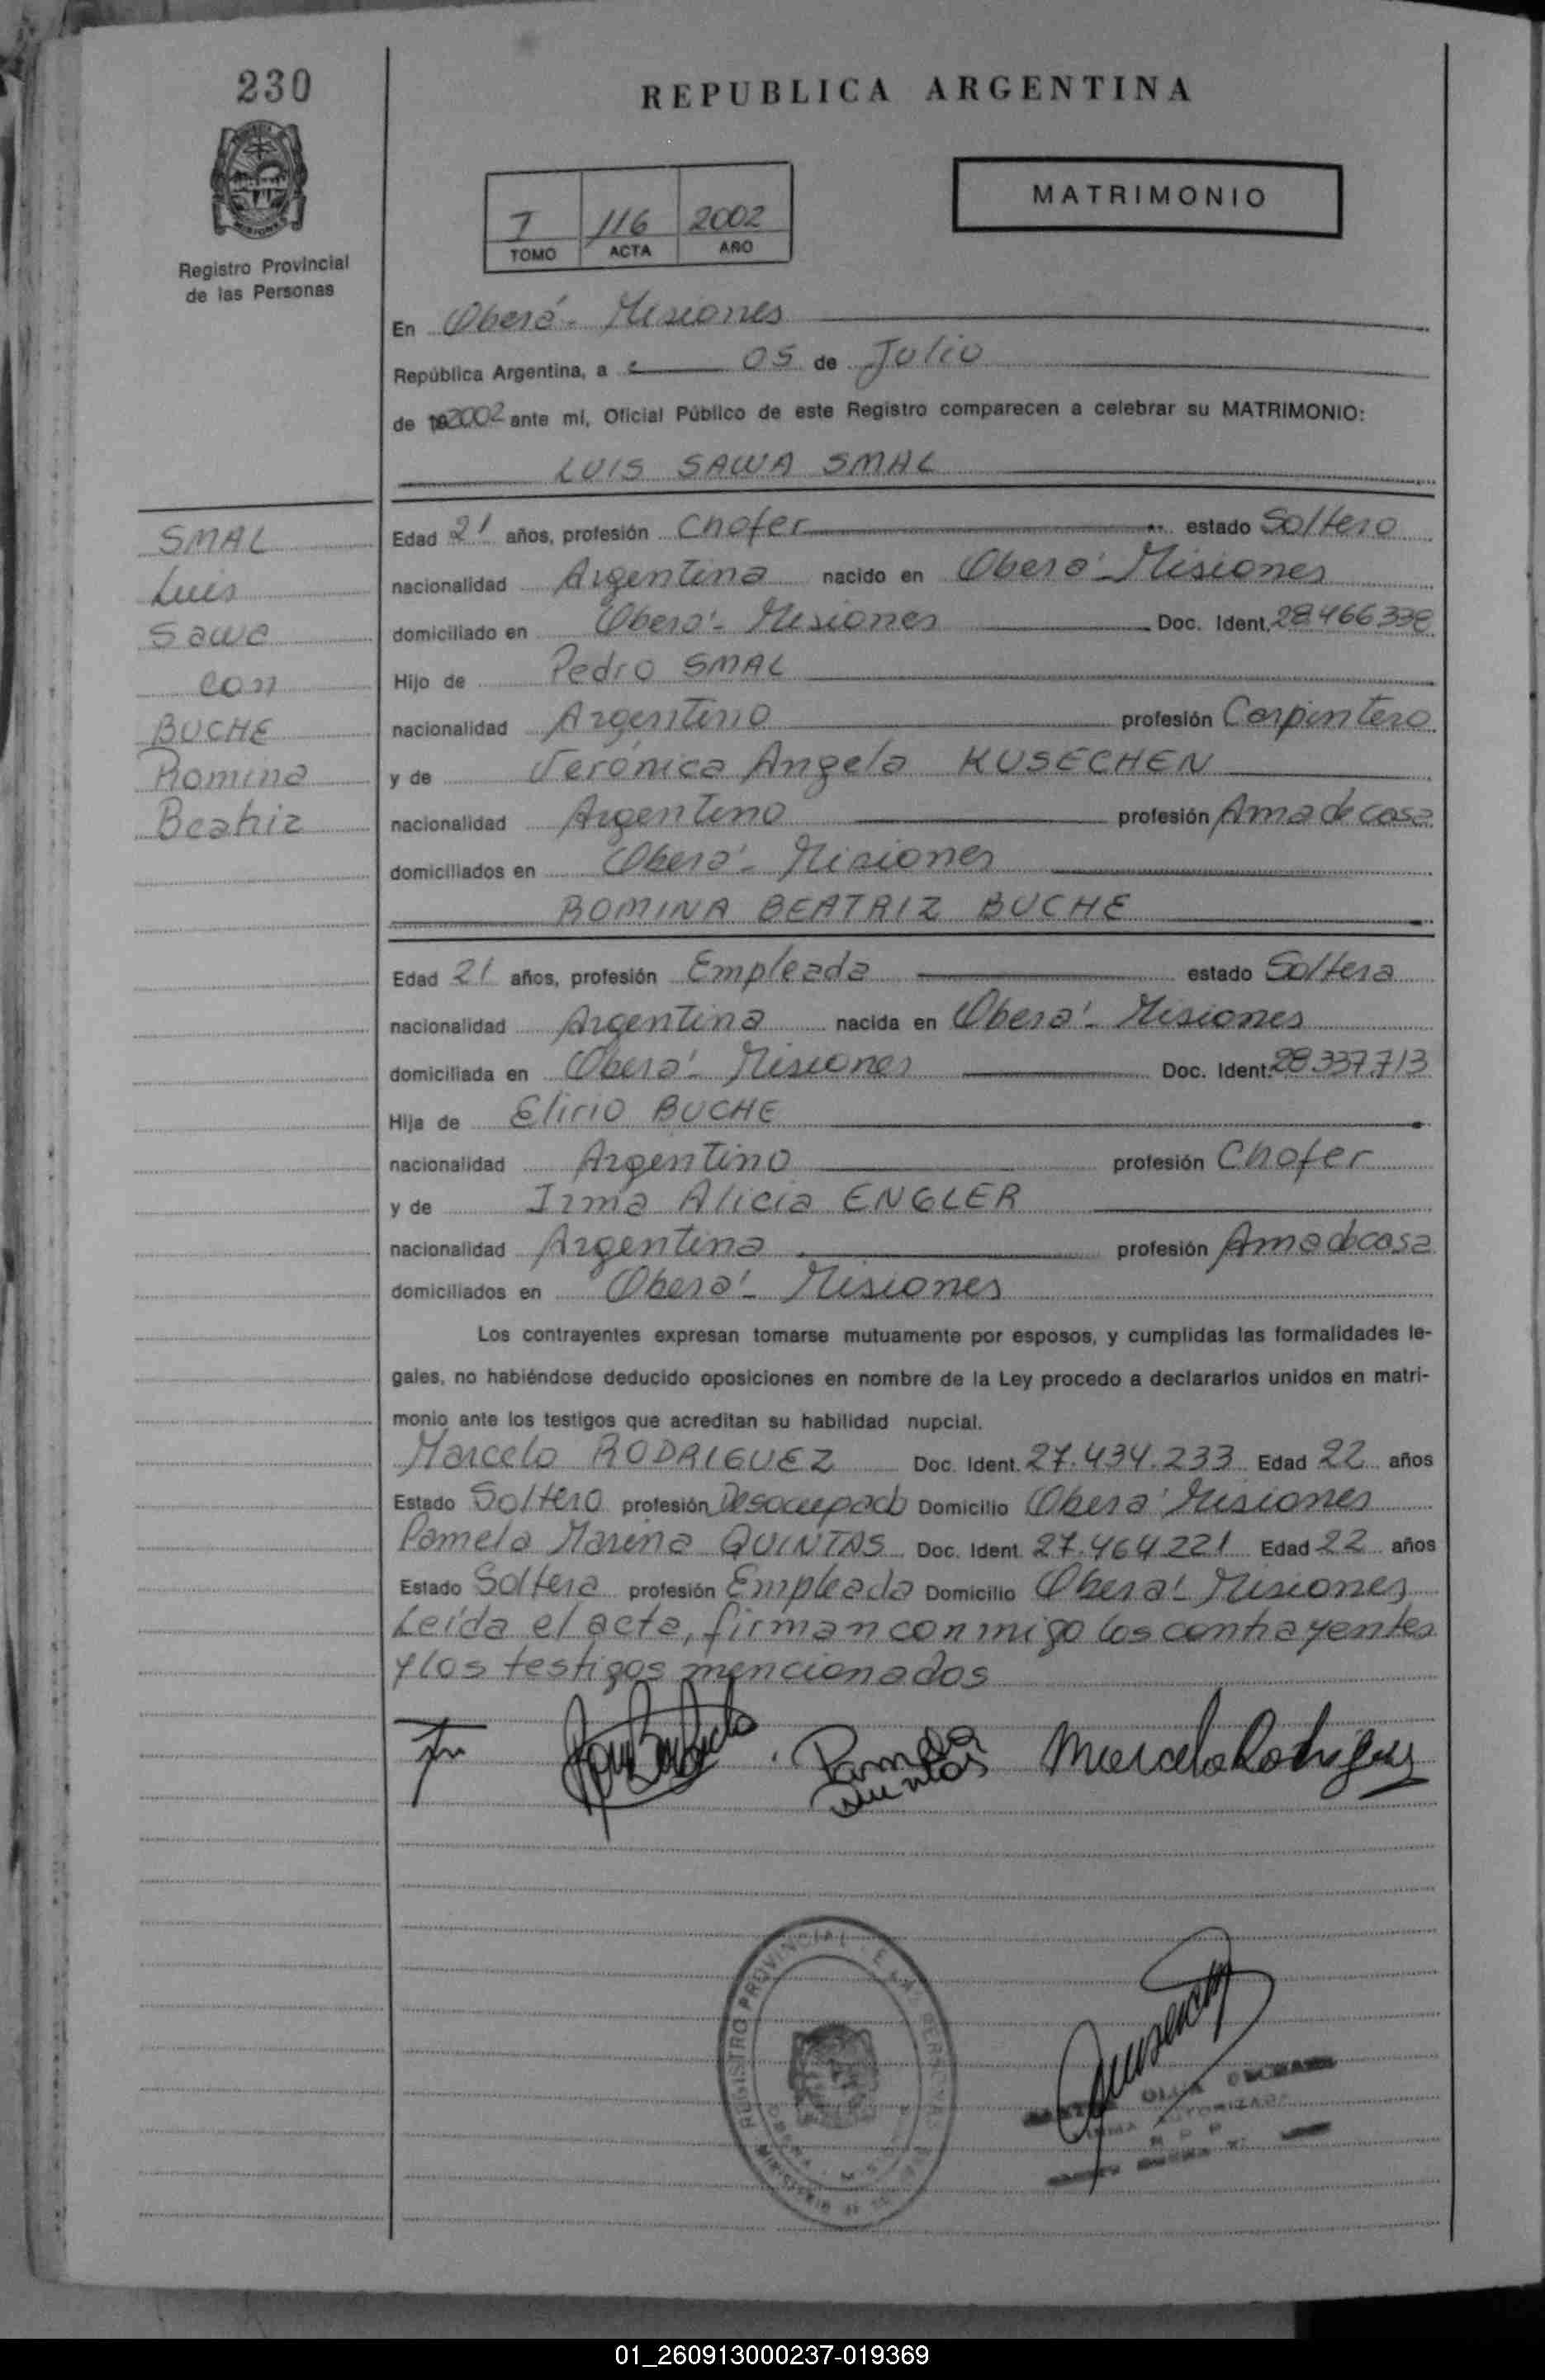 230
REPUBLICA ARGENTINA
MATRIMONIO
I 116 2002
TOMO ACTA AÑO
Registro Provincial
de las Personas
En Oberá - Misiones
República Argentina, a 05 de Julio
de 192002 ante mí, Oficial Público de este Registro comparecen a celebrar su MATRIMONIO:
LUIS SAWA SMAL
SMAL
Luis
Sawa
con
BUCHE
Romina
Beatriz
Edad 21 años, profesión Chofer estado Soltero
nacionalidad Argentina nacido en Oberá - Misiones
domiciliado en Oberá - Misiones Doc. Ident. 28.466.338
Hijo de Pedro SMAL
nacionalidad Argentino profesión Carpintero
y de Verónica Angela KUSECHEN
nacionalidad Argentina profesión Ama de casa
domiciliados en Oberá - Misiones
ROMINA BEATRIZ BUCHE
Edad 21 años, profesión Empleada estado Soltera
nacionalidad Argentina nacida en Oberá - Misiones
domiciliada en Oberá - Misiones Doc. Ident. 28.337.713
Hija de Elirio BUCHE
nacionalidad Argentino profesión Chofer
y de Irma Alicia ENGLER
nacionalidad Argentina profesión Ama de casa
domiciliados en Oberá - Misiones
Los contrayentes expresan tomarse mutuamente por esposos, y cumplidas las formalidades le-
gales, no habiéndose deducido oposiciones en nombre de la Ley procedo a declararlos unidos en matri-
monio ante los testigos que acreditan su habilidad nupcial.
Marcelo RODRIGUEZ Doc. Ident. 27.434.233 Edad 22 años
Estado Soltero profesión Desocupado Domicilio Oberá Misiones
Pamela Marina QUINTAS Doc. Ident. 27.464.221 Edad 22 años
Estado Soltera profesión Empleada Domicilio Oberá - Misiones
Leída el acta, firman conmigo los contrayentes
y los testigos mencionados
Pamela
Quintas
Marcelo Rodriguez
REGISTRO PROVINCIAL DE LAS PERSONAS
01_260913000237-019369